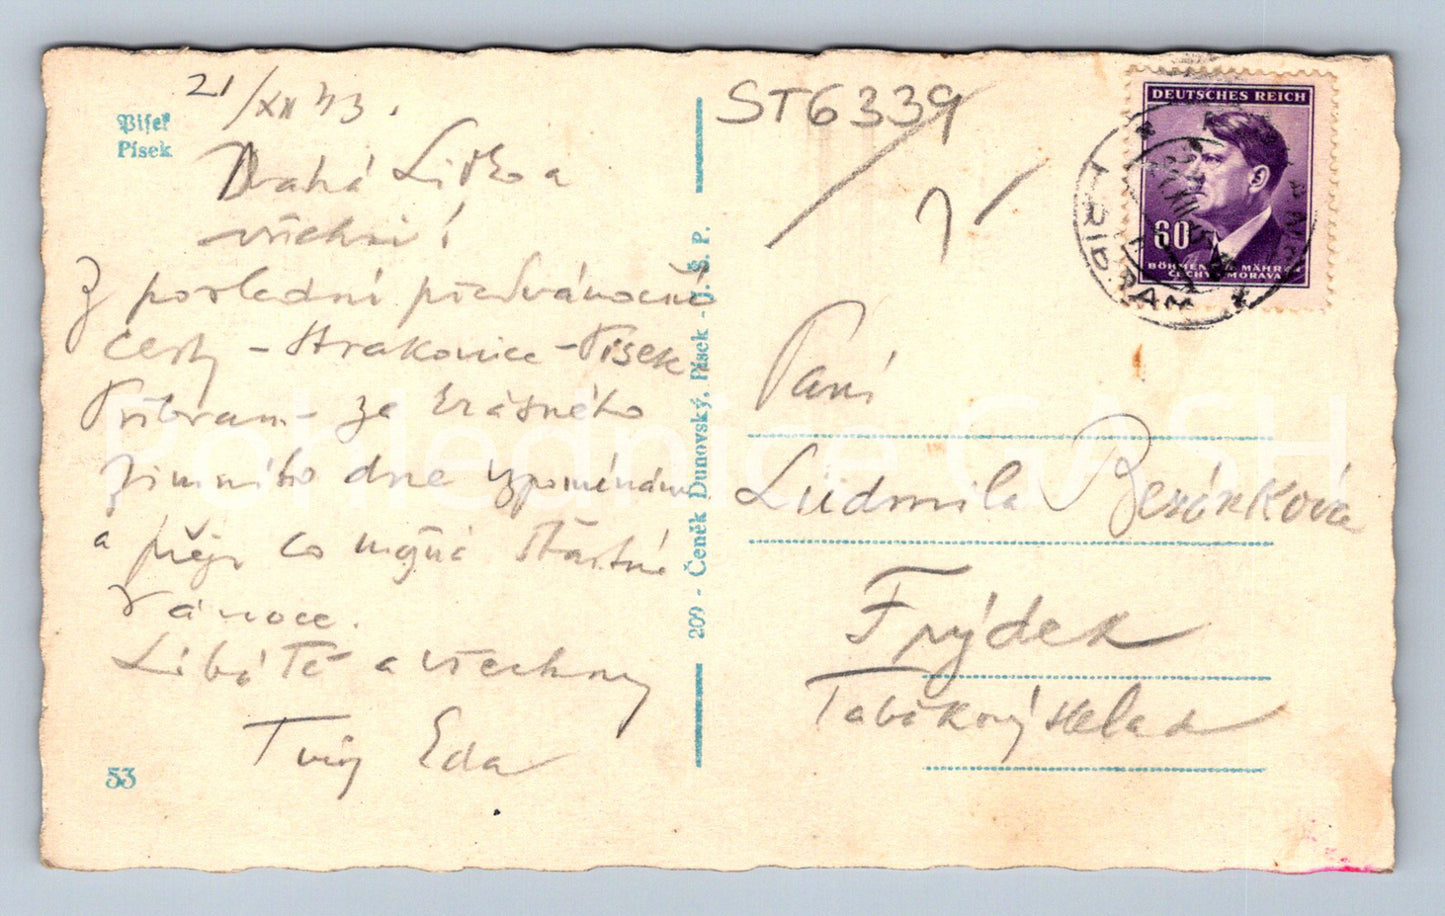 Pisek
Písek
21/XII 43.
Drahá Lidko a
všichni!
Z poslední předvánoční
cesty - Strakonice - Písek
Příbram - ze krásného
zimního dne vzpomínám
a přeji co možná šťastné
Vánoce.
Líbá Tě a všechny
Tvůj Eda
53
209 - Čeněk Dunovský, Písek - J. Š. P.
ST6339
DEUTSCHES REICH
60
BÖHMEN UND MÄHREN
ČECHY A MORAVA
Paní
Ludmila
Frýdek
Tabákový sklad
Pohlednice GASH